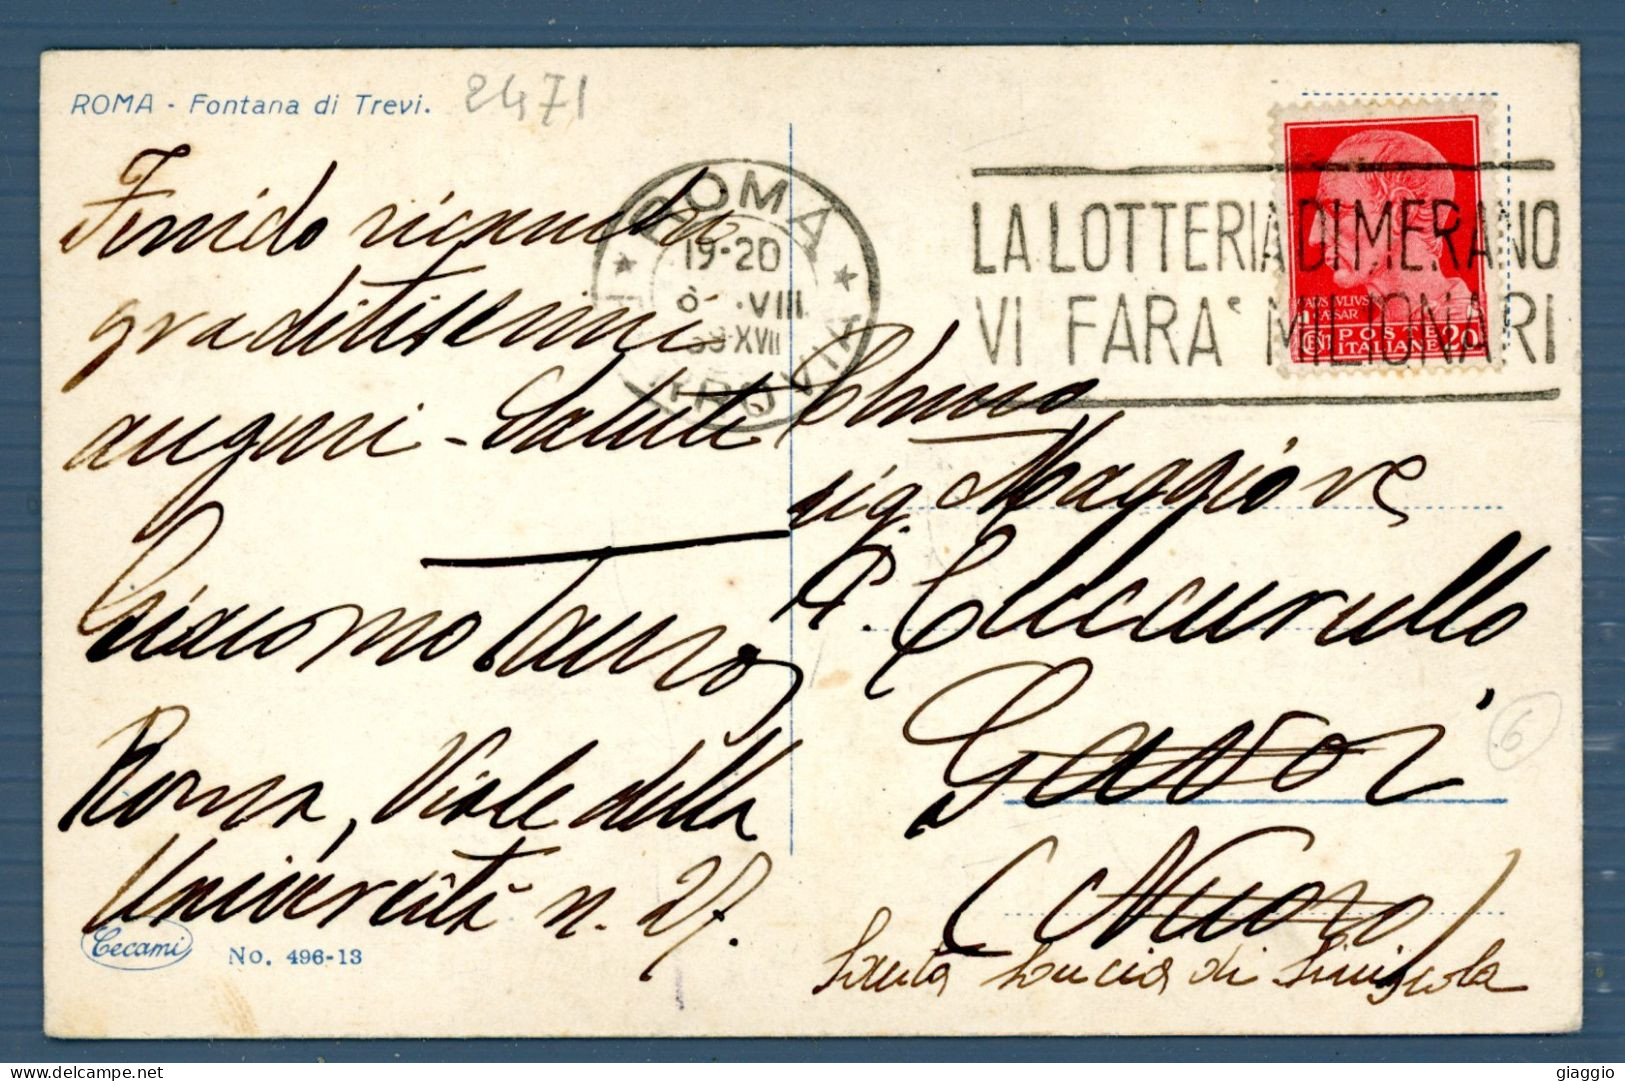 ROMA - Fontana di Trevi.
2471
ROMA
19-20
VIII
XVII
FERROVIA
LA LOTTERIA DI MERANO
VI FARA' MILIONARI
CAIUS IVLIVS
CAESAR
POSTE
ITALIANE
CENT. 20
graditissimi
auguri - Saluti
Giacomo Tauro
Roma, Viale della
Università n. 27.
Cecami
No. 496-13
sig. Maggiore
P. Cuccurullo
Gavoi
(Nuoro)
Santa Lucia di Siniscola
6
giaggio
delcampe.net